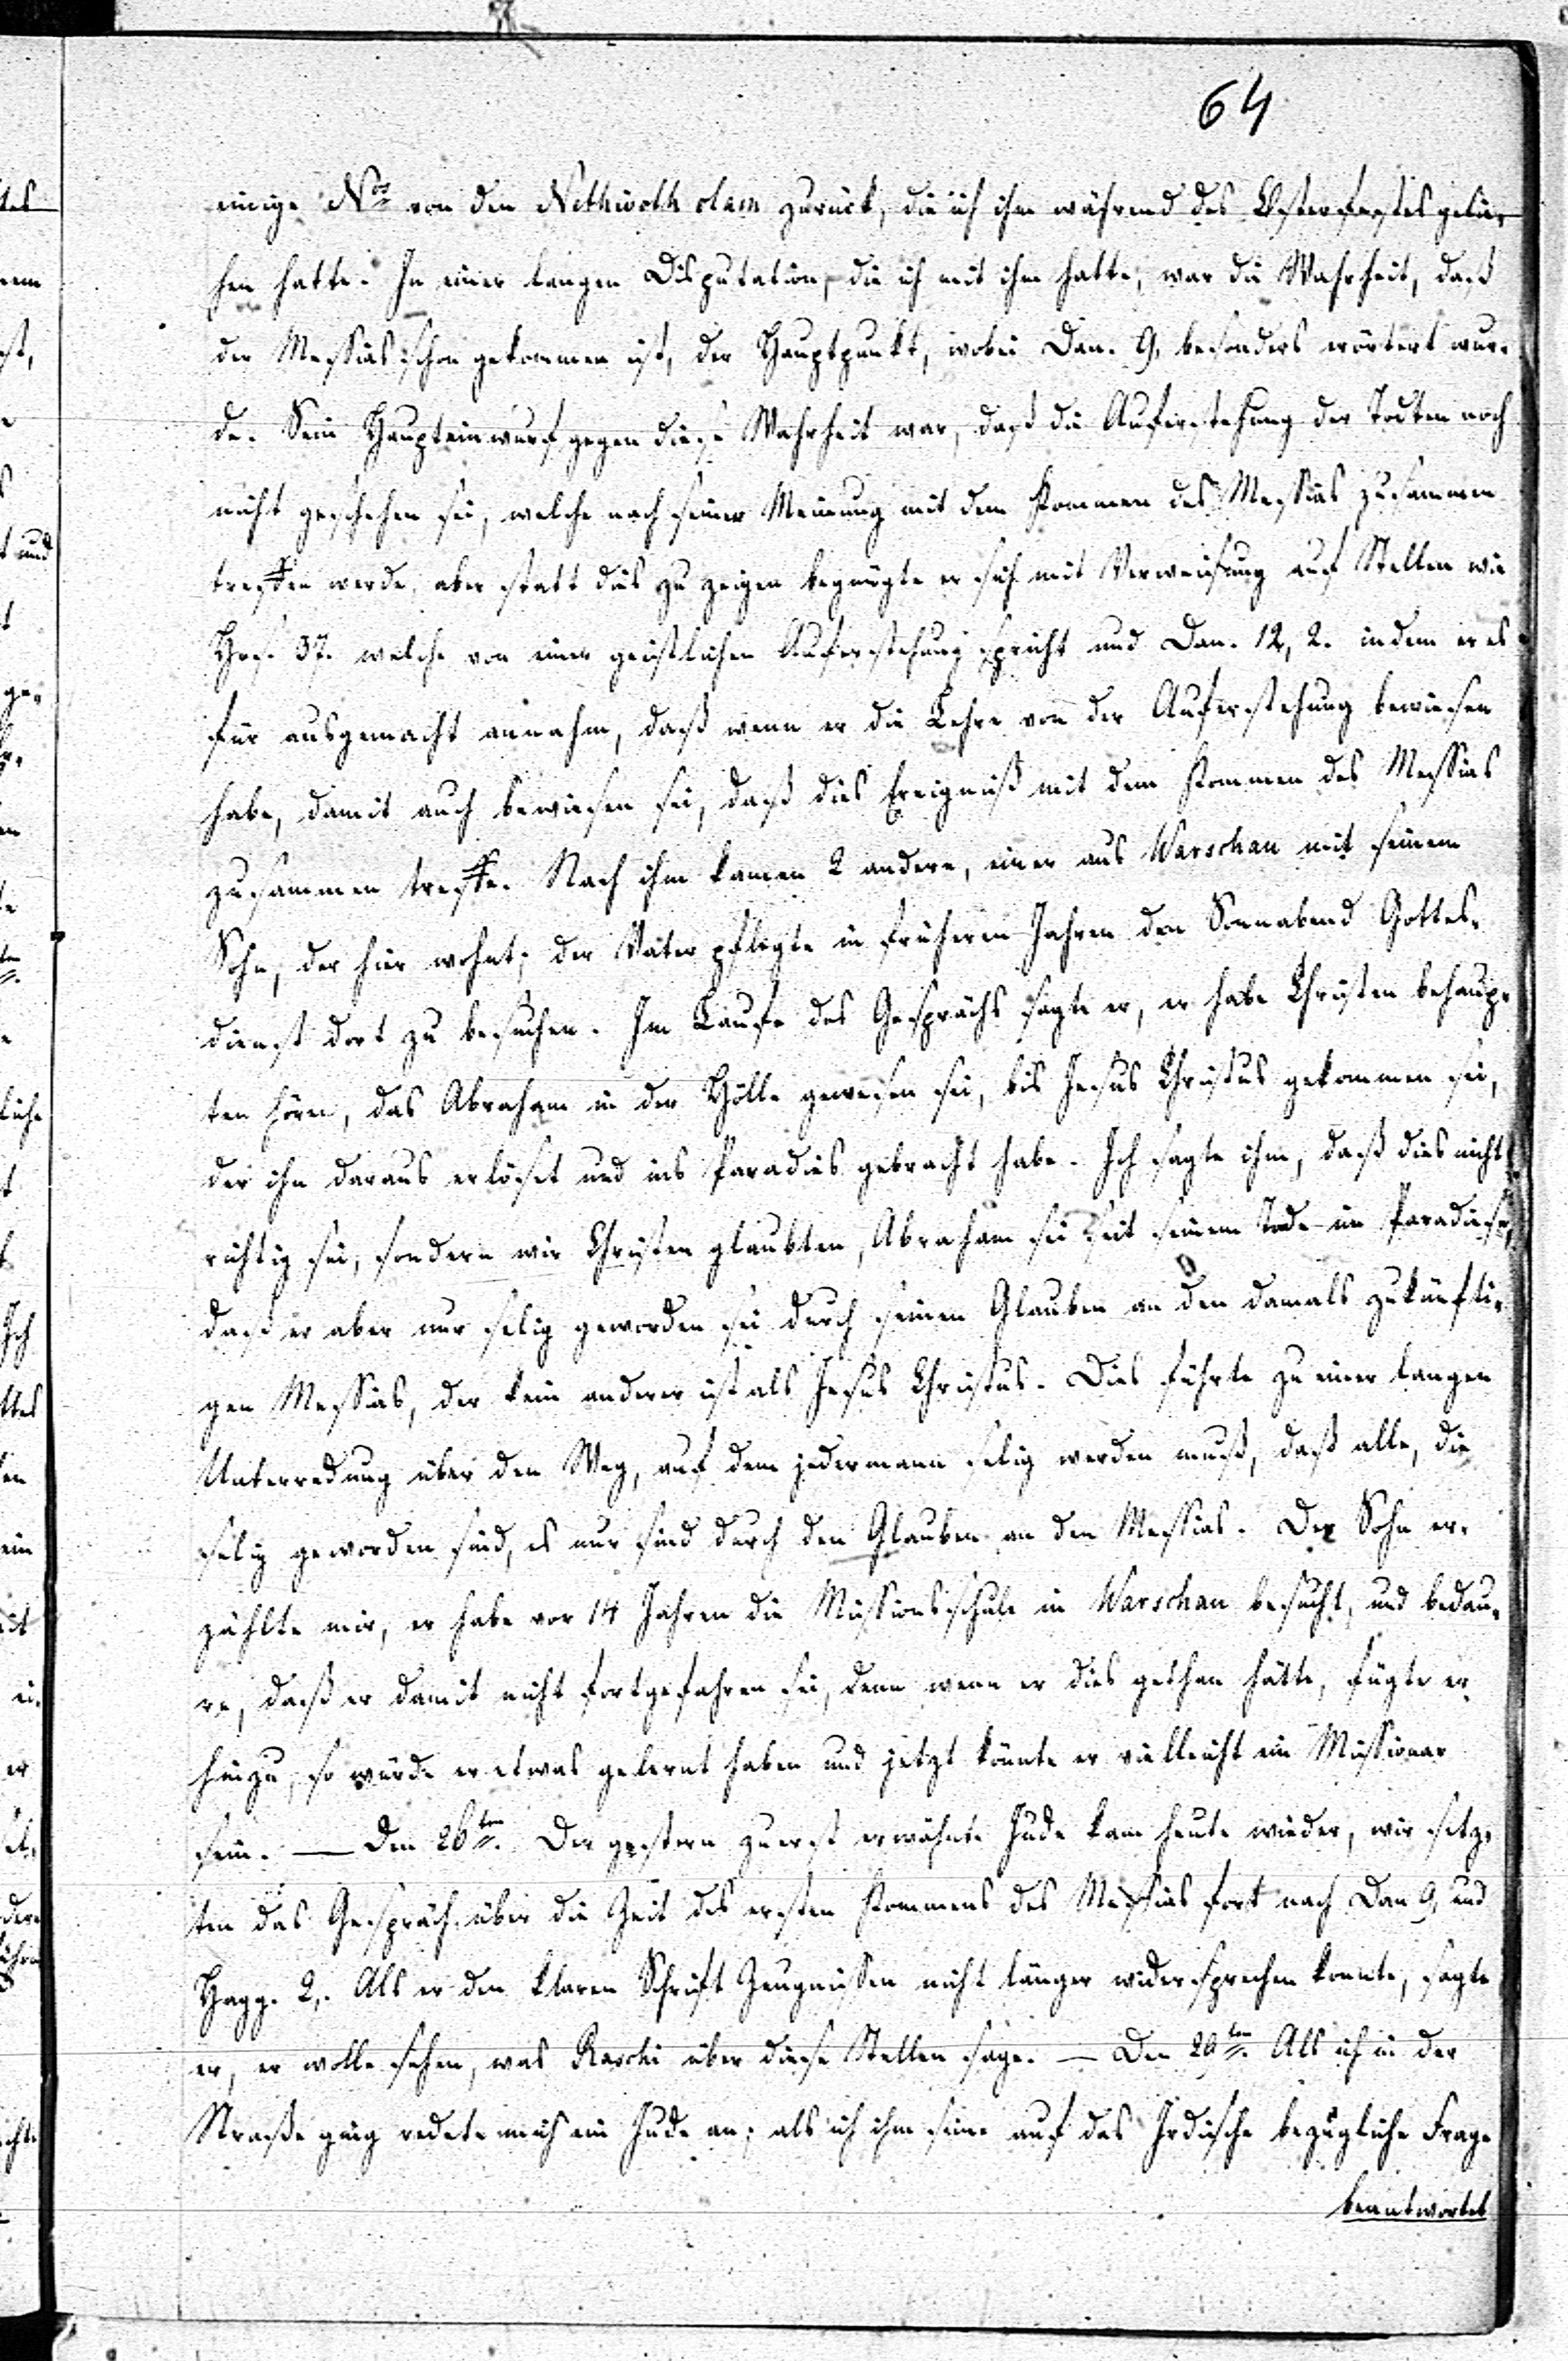 64
einige Nos von den Nethivoth olam zurück, die ich ihm während des Osterfestes gelie-
hen hatte. In einer langen Disputation, die ich mit ihm hatte, war die Wahrheit, daß
der Messias schon gekommen ist, der Hauptpunkt, wobei Dan. 9, besonders erörtert wur-
de. Sein Haupteinwurf gegen diese Wahrheit war, daß die Auferstehung der Todten noch
nicht geschehen sei, welche nach seiner Meinung mit dem Kommen des Messias zusammen
treffen werde, aber statt dies zu zeigen begnügte er sich mit Verweisung auf Stellen wie
Hes. 37. welche von einer geistlichen Auferstehung spricht und Dan. 12, 2. indem er es
für ausgemacht annahm, daß wenn er die Lehre von der Auferstehung bewiesen
habe, damit auch bewiesen sei, daß dies Ereigniß mit dem Kommen des Messias
zusammen treffe. Nach ihm kamen 2 andere, einer aus Warschau mit seinem
Sohn, der hier wohnt; der Vater pflegte in früheren Jahren den Sonnabend Gottes-
dienst dort zu besuchen. Im Laufe des Gesprächs sagte er, er habe Christen behaup-
ten hören, das Abraham in der Hölle gewesen sei, bis Jesus Christus gekommen sei,
der ihn daraus erlöset und ins Paradies gebracht habe. Ich sagte ihm, daß dies nicht
richtig sei, sondern wir Christen glaubten, Abraham sei seit seinem Tode im Paradiese,
daß er aber nur selig geworden sei durch seinen Glauben an den damals zukünfti-
gen Messias, der kein anderer ist als Jesus Christus. Dies führte zu einer langen
Unterredung über den Weg, auf dem jedermann selig werden muß, daß alle, die
selig geworden sind, es nur sind durch den Glauben an den Messias. Der Sohn er-
zählte mir, er habe vor 14 Jahren die Missionsschule in Warschau besucht, und bedau-
re, daß er damit nicht fortgefahren sei, denn wenn er dies gethan hätte, fügte er
hinzu, so würde er etwas gelernt haben und jetzt könnte er vielleicht ein Missionar
sein. — Den 26ten. Der gestern zuerst erwähnte Jude kam heute wieder, wir setz-
ten das Gespräch über die Zeit des ersten Kommens des Messias fort nach Dan 9, und
Hagg. 2,. Als er den klaren Schrift Zeugnissen nicht länger widersprechen konnte, sagte
er, er wolle sehen, was Raschi über diese Stellen sage. — Den 29ten. Als ich in der
Straße ging redete mich ein Jude an; als ich ihm seine auf das Irdische bezügliche Frage
beantwortet